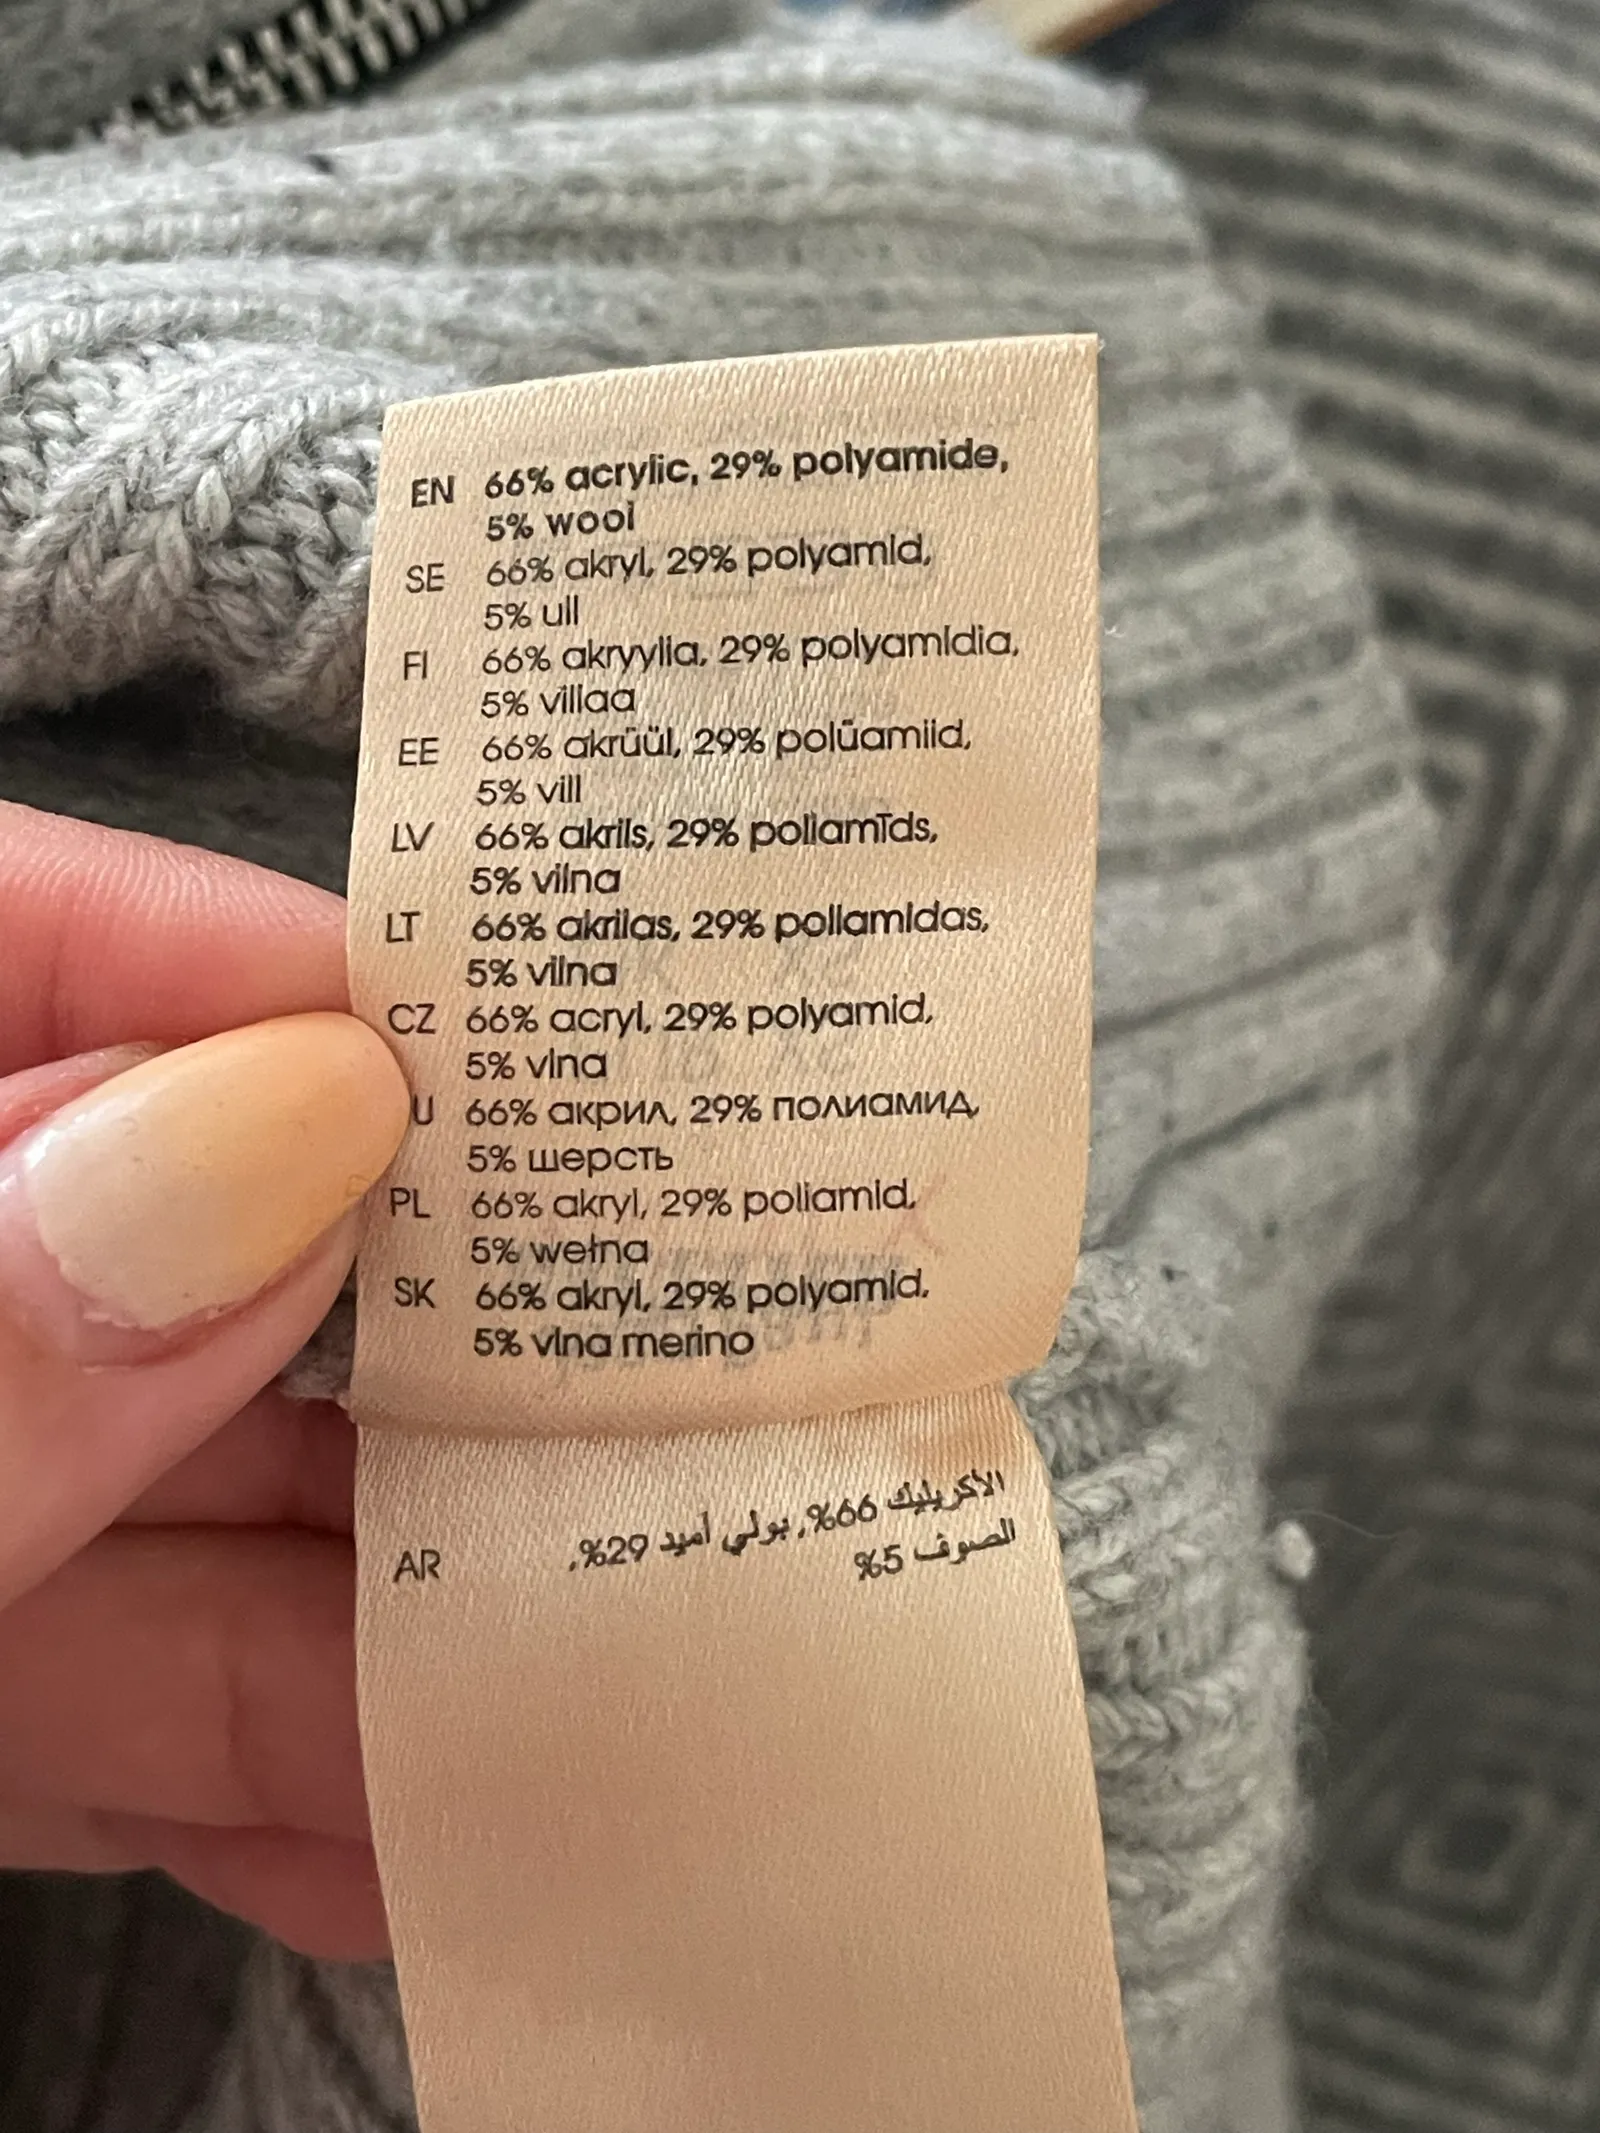 EN 66% acrylic, 29% polyamide,
5% wool
SE 66% akryl, 29% polyamid,
5% ull
FI 66% akryylia, 29% polyamidia,
5% villaa
EE 66% akrüül, 29% polüamiid,
5% vill
LV 66% akrils, 29% poliamīds,
5% vilna
LT 66% akrilas, 29% poliamidas,
5% vilna
CZ 66% acryl, 29% polyamid,
5% vlna
U 66% акрил, 29% полиамид,
5% шерсть
PL 66% akryl, 29% poliamid,
5% wełna
SK 66% akryl, 29% polyamid,
5% vlna merino
AR الأكريليك 66%, بولي أميد 29%,
الصوف 5%